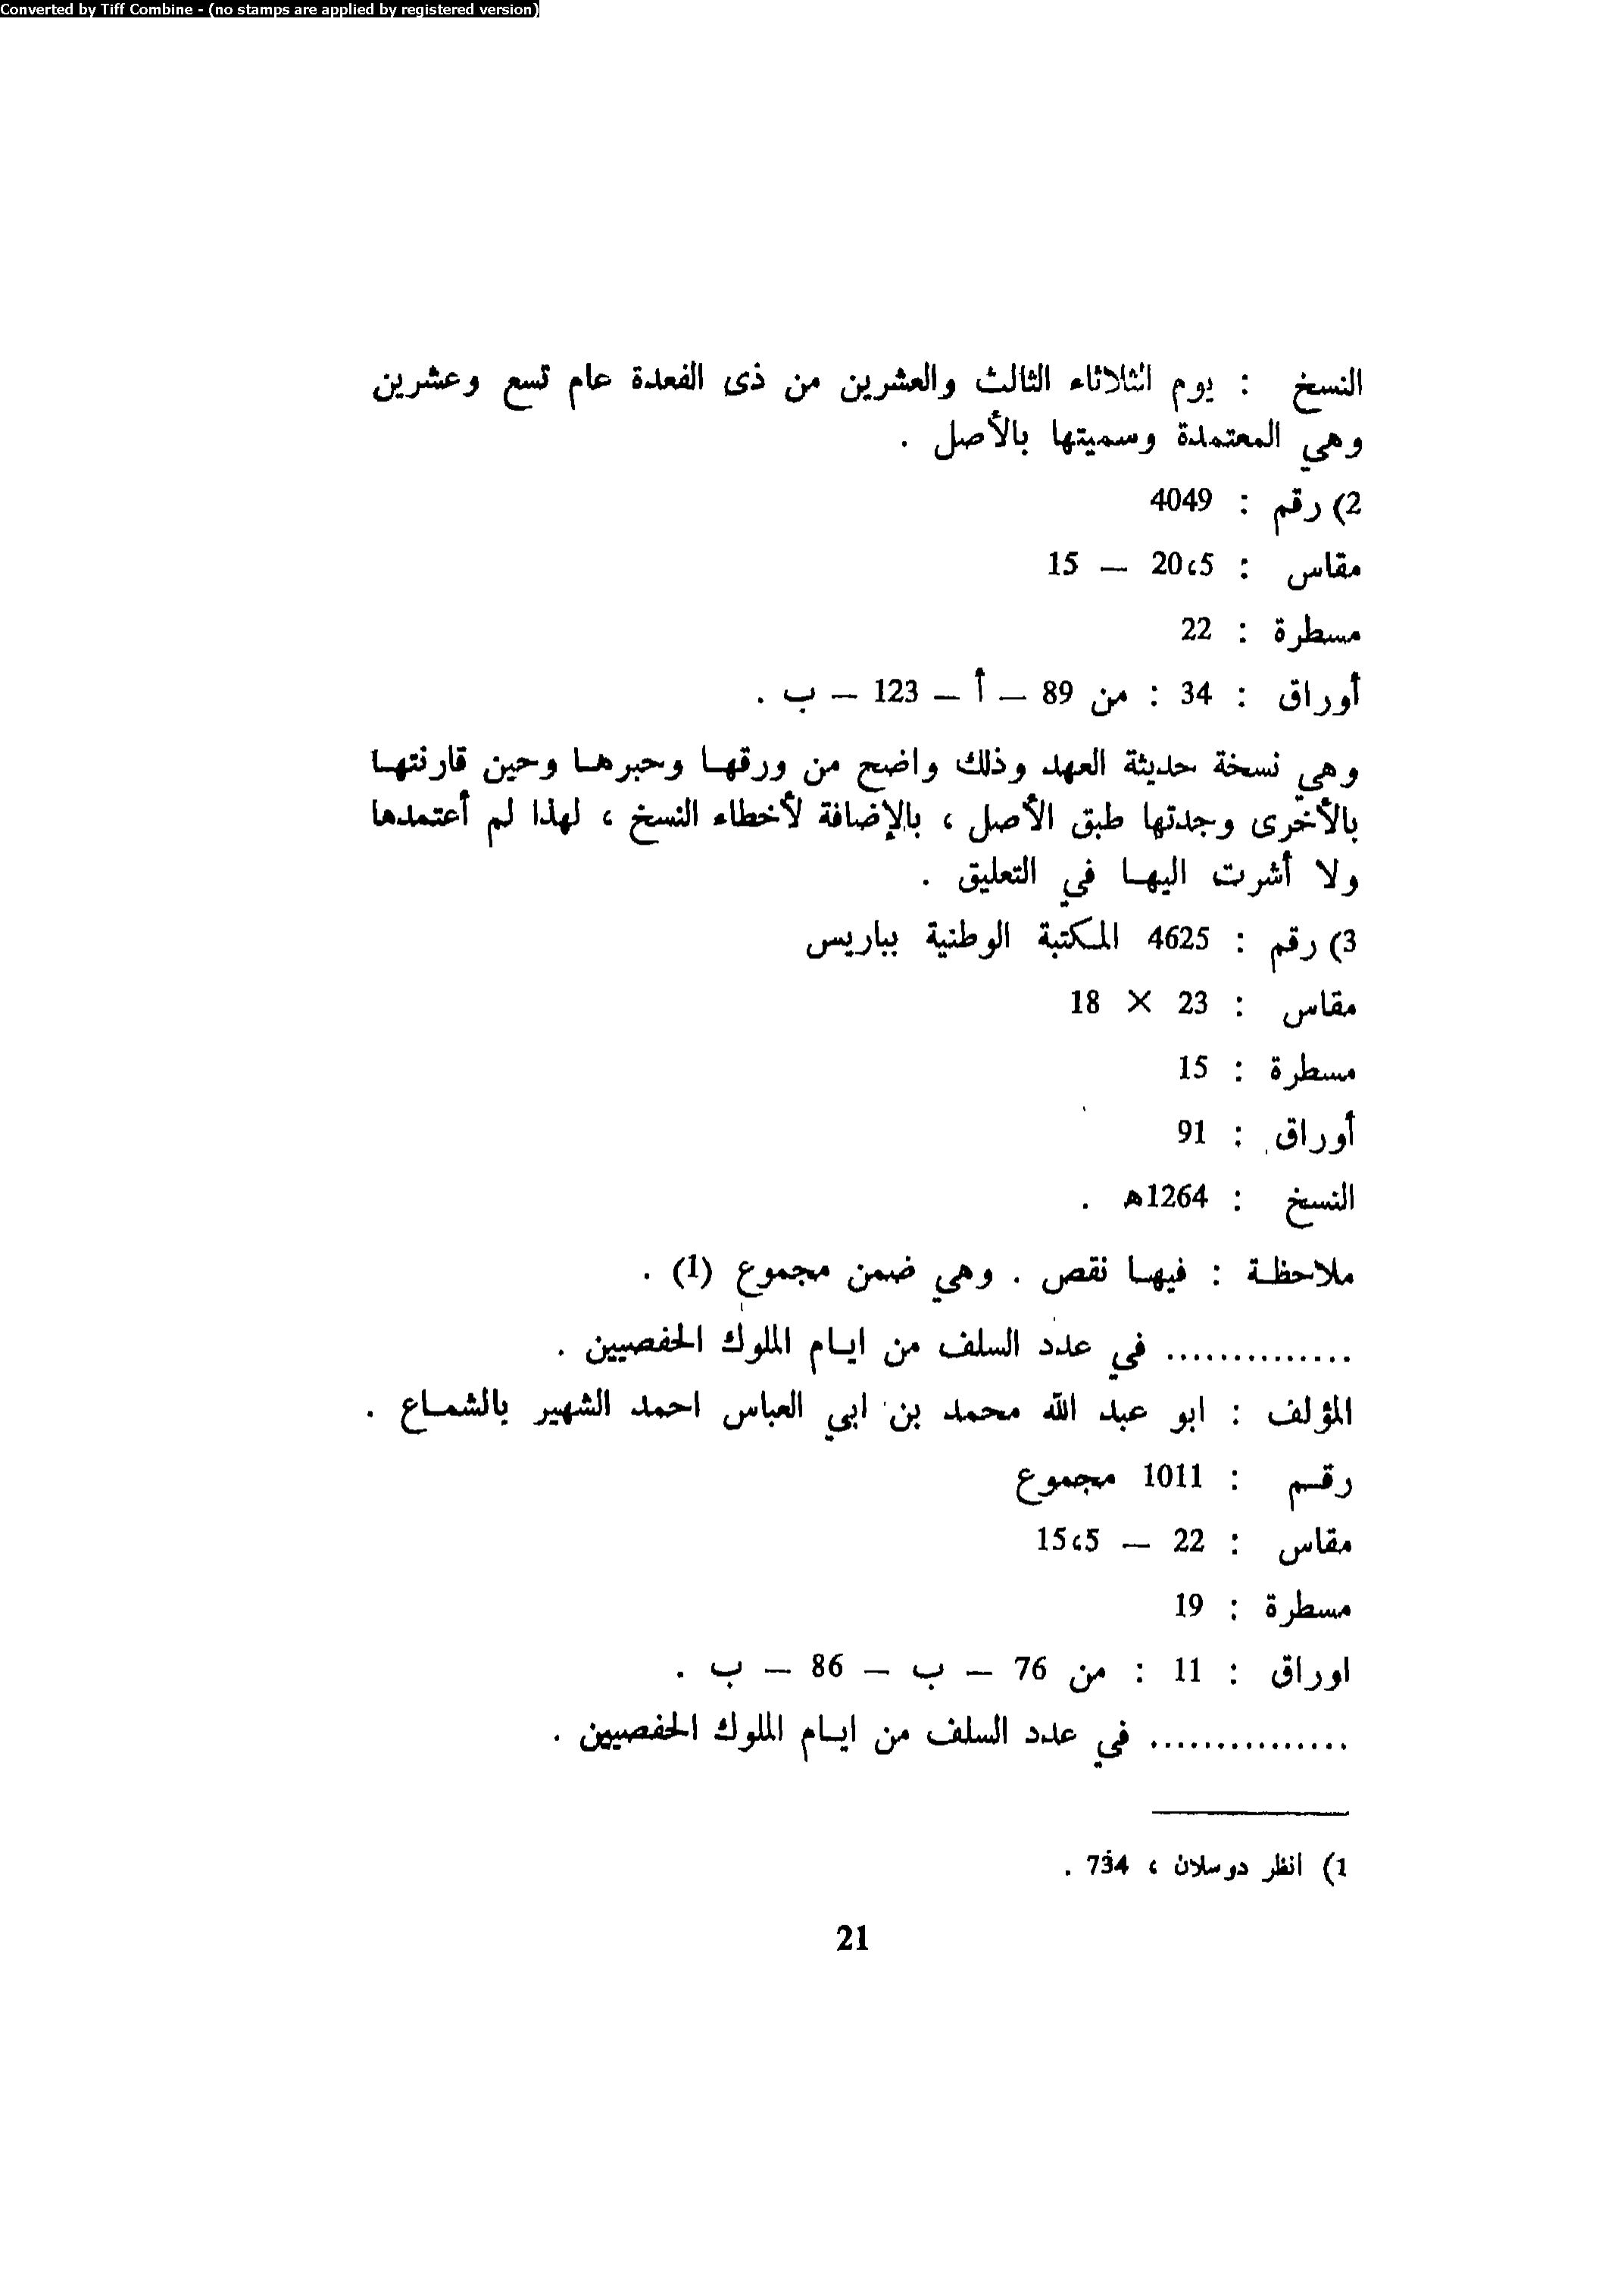 Converted by Tiff Combine - (no stamps are applied by registered version)
النسخ : يوم الثلاثاء الثالث والعشرين من ذى القعدة عام تسع وعشرين
وهي المعتمدة وسميتها بالأصل .
2) رقم : 4049
مقاس : 20،5 – 15
مسطرة : 22
أوراق : 34 : من 89 – أ – 123 – ب .
وهي نسخة حديثة العهد وذلك واضح من ورقها وحبرها وحين قارنتها
بالأخرى وجدتها طبق الأصل ، بالإضافة لأخطاء النسخ ، لهذا لم أعتمدها
ولا أشرت اليها في التعليق .
3) رقم : 4625 المكتبة الوطنية بباريس
مقاس : 23 × 18
مسطرة : 15
أوراق : 91
النسخ : 1264ه .
ملاحظة : فيها نقص . وهي ضمن مجموع (1) .
.............. في عدد السلف من ايام الملوك الحفصيين .
المؤلف : ابو عبد الله محمد بن ابي العباس احمد الشهير بالشماع .
رقم : 1011 مجموع
مقاس : 22 – 15،5
مسطرة : 19
اوراق : 11 : من 76 – ب – 86 – ب .
............... في عدد السلف من ايام الملوك الحفصيين .
1) انظر دوسلان ، 734 .
21